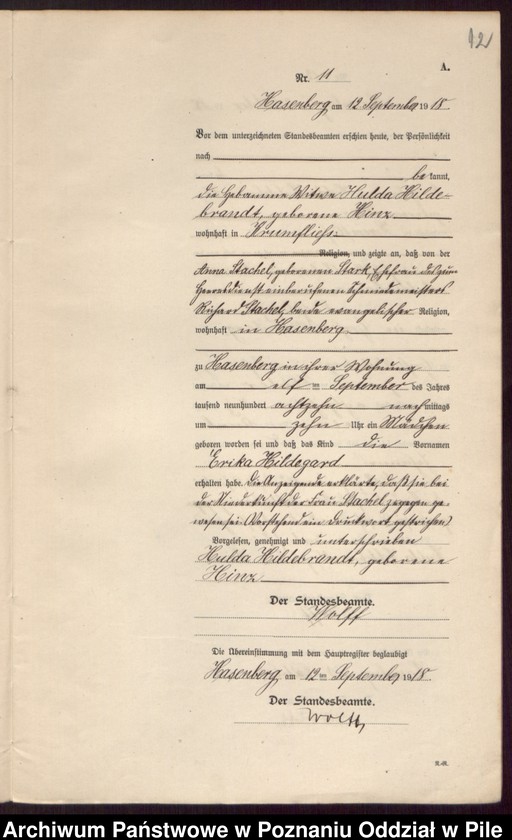 12
A.
Nr. 11
Hasenberg am 12 September 1918
Vor dem unterzeichneten Standesbeamten erschien heute, der Persönlichkeit
nach
be kannt,
die Hebamme Witwe Hulda Hilde-
brandt, geborene Hinz
wohnhaft in Krumfließ
Religion, und zeigte an, daß von der
Anna Stachel, geborenen Stark Ehefrau des zum
Heeresdienst einberufenen Schmiedemeisters
Richard Stachel, beide evangelischer Religion,
wohnhaft in Hasenberg
zu Hasenberg in ihrer Wohnung
am elf ten September des Jahres
tausend neunhundert achtzehn nachmittags
um zehn Uhr ein Mädchen
geboren worden sei und daß das Kind die Vornamen
Erika Hildegard
erhalten habe. Die Anzeigende erklärte, daß sie bei
der Niederkunft der Frau Stachel zugegen ge-
wesen sei. (Vorstehend ein Druckwort gestrichen)
Vorgelesen, genehmigt und unterschrieben
Hulda Hildebrandt, geborene
Hinz
Der Standesbeamte.
Wolff
Die Übereinstimmung mit dem Hauptregister beglaubigt
Hasenberg am 12 ten September 1918
Der Standesbeamte.
Wolff
Archiwum Państwowe w Poznaniu Oddział w Pile